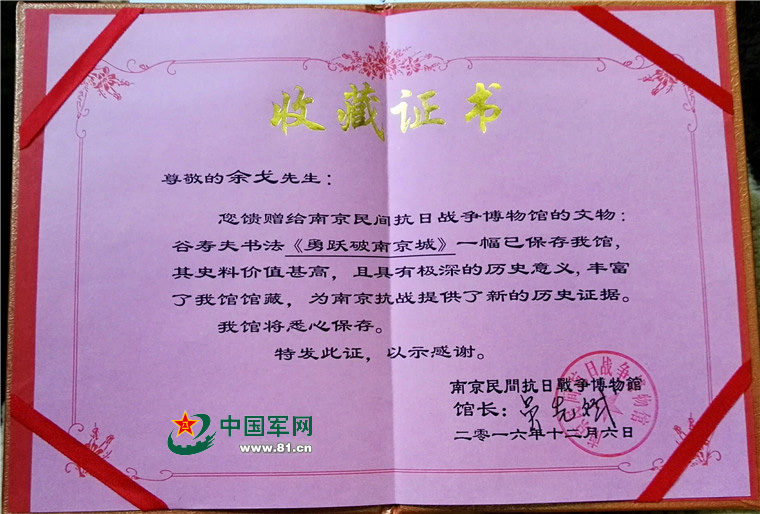 收藏证书
尊敬的余戈先生：
您馈赠给南京民间抗日战争博物馆的文物：
谷寿夫书法《勇跃破南京城》一幅已保存我馆，
其史料价值甚高，且具有极深的历史意义，丰富
了我馆馆藏，为南京抗战提供了新的历史证据。
我馆将悉心保存。
特发此证，以示感谢。
南京民間抗日戰争博物館
馆长：吴先斌
二零一六年十二月六日
中国军网
www.81.cn